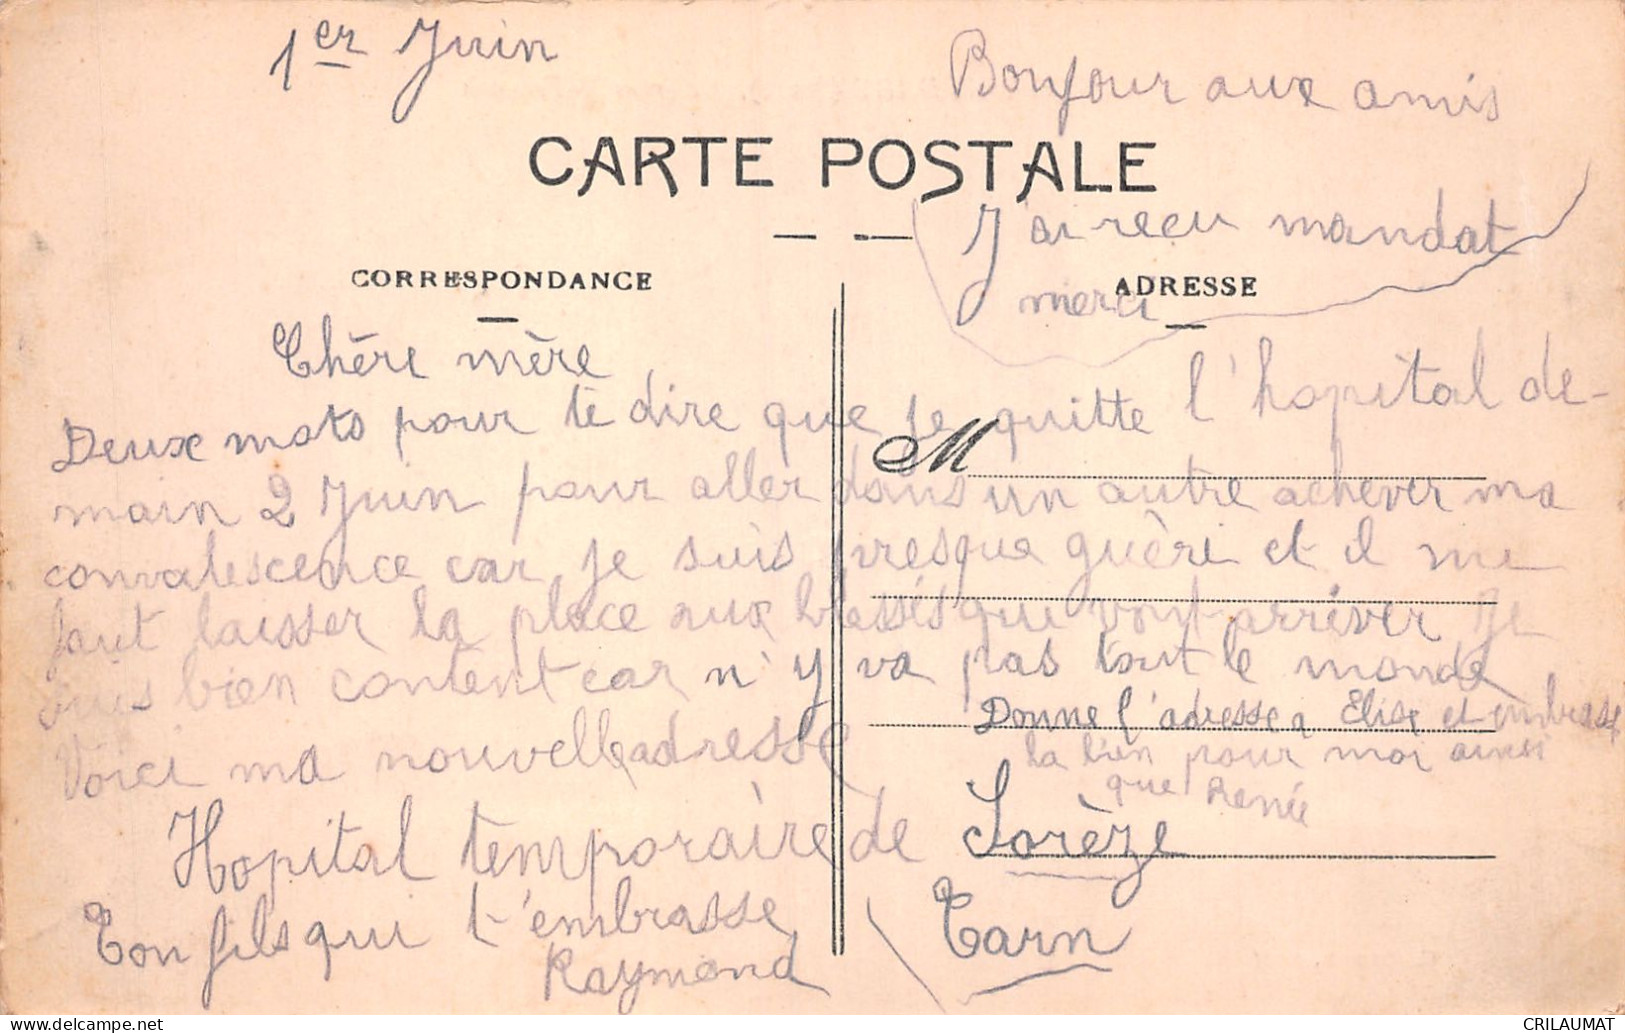 1er Juin
Bonjour aux amis
CARTE POSTALE
J'ai recu mandat
merci
CORRESPONDANCE
ADRESSE
Chère mère
Deux mots pour te dire que je quitte l'hopital de-
main 2 Juin pour aller dans un autre achever ma
convalescence car je suis presque guèri et il me
faut laisser la place aux blessés qui vont arriver Je
suis bien content car n'y va pas tout le monde
M
Donne l'adresse a Elise et embrasse
la bien pour moi ainsi
que Renée
Voici ma nouvelle adresse
Hopital temporaire de Sorèze
Tarn
Ton fils qui t'embrasse
Raymond
CRILAUMAT